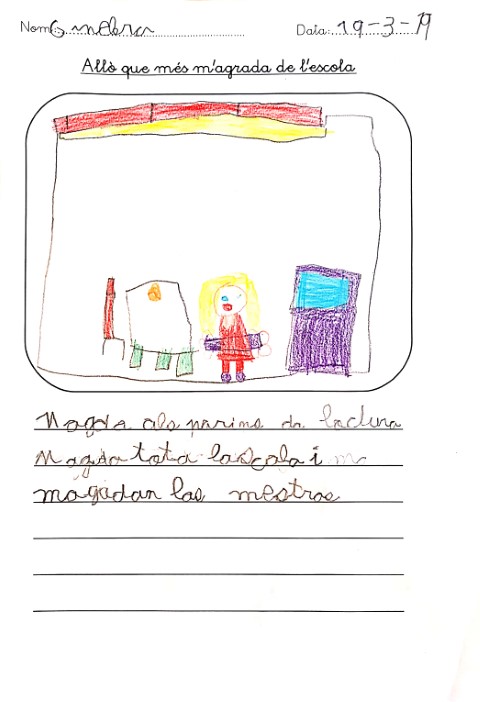 Nom: Data: 19-3-19
Allò que més m'agrada de l'escola
Magda als parins da lactura
Magda tota lascola i m
magadan las mestras